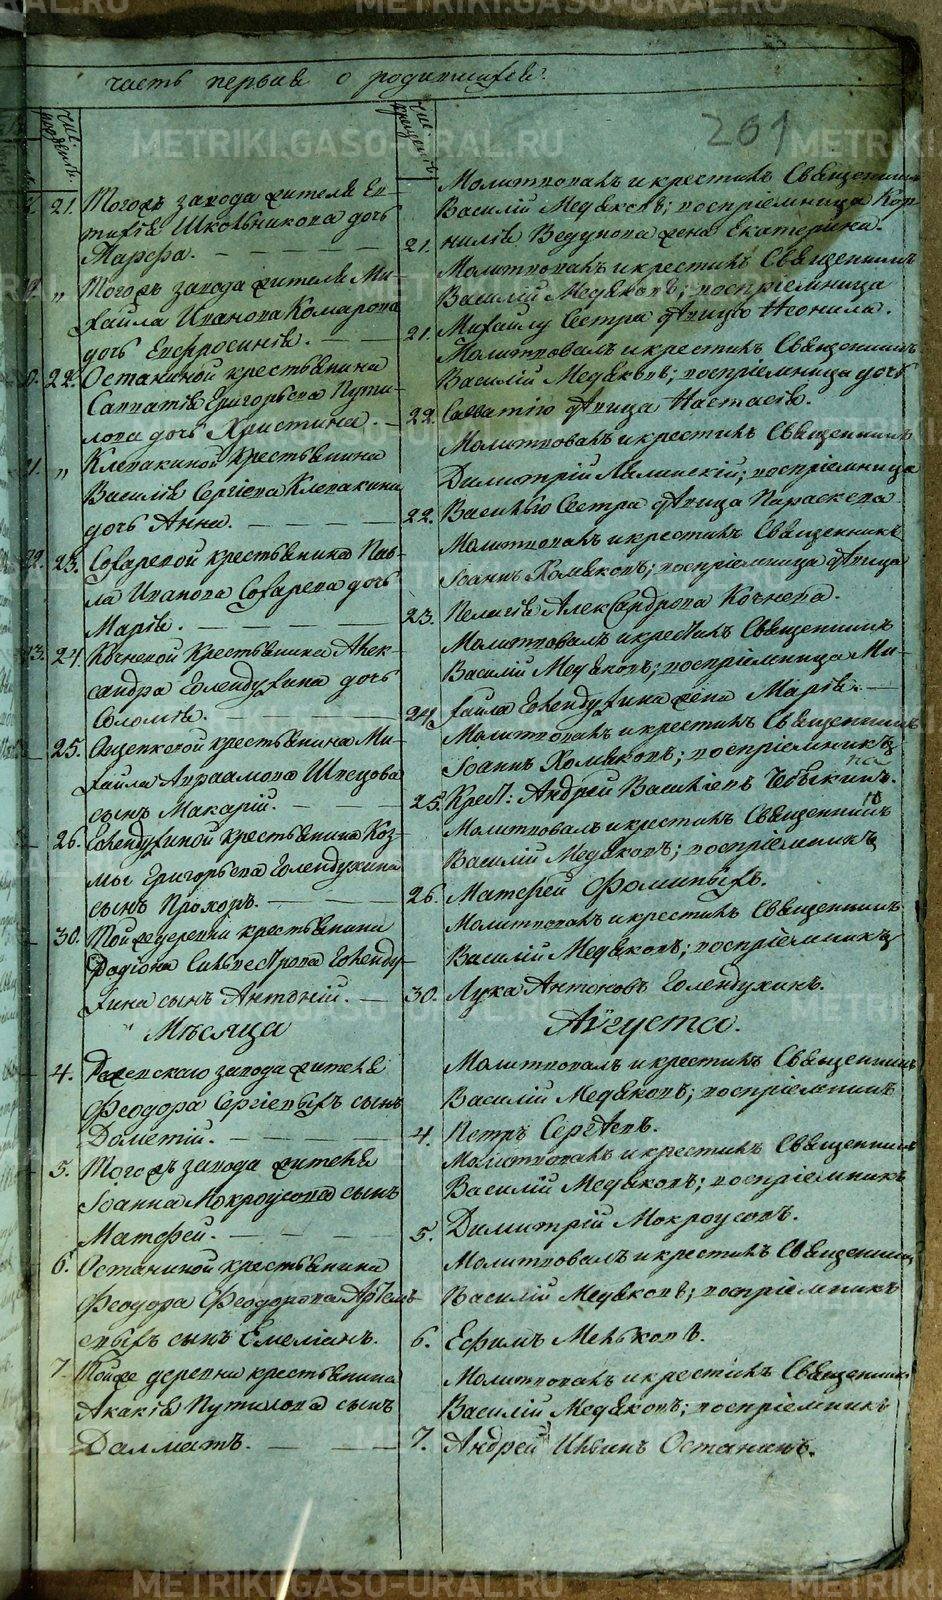 часть первая о родившихся.
201
Числ: рожденiя.
Числ: крещенiя.
21. Тогожъ завода жителя Ев-
тихiя Школьникова дочь
Марфа.
Молитвовалъ и крестилъ Священникъ
Василiй Медяковъ; воспрiемница Кор-
21. нилiя Ведунова жена Екатерина.
" Тогожъ завода жителя Ми-
хаила Иванова Комарова
дочь Евфросинiя.
Молитвовалъ и крестилъ Священникъ
Василiй Медяковъ; воспрiемница
21. Михаилу Сестра дѣвица Неонила.
22. Останиной крестьянина
Савватiя Григорьева Пути-
лова дочь Христина.
Молитвовалъ и крестилъ Священникъ
Василiй Медяковъ; воспрiемница дочь
22. Савватiю дѣвица Настасiя.
" Клевакиной крестьянина
Василiя Сергiева Клевакина
дочь Анна.
Молитвовалъ и крестилъ Священникъ
Димитрiй Лялинскiй; воспрiемница
22. Василью Сестра дѣвица Параскева
23. Сохаревой крестьянина Пав-
ла Иванова Сохарева дочь
Марiя.
Молитвовалъ и крестилъ Священникъ
Iоаннъ Хомяковъ; воспрiемница дѣвица
23. Пелагiя Александрова Кочнева.
24. Кочневой крестьянина Алек-
сандра Голендухина дочь
Соломiя.
Молитвовалъ и крестилъ Священникъ
Василiй Медяковъ; воспрiемница Ми-
24. хаила Голендухина жена Марiя.
25. Ощепковой крестьянина Ми-
хаила Авраамова Швецова
сынъ Макарiй.
Молитвовалъ и крестилъ Священникъ
Iоаннъ Хомяковъ; воспрiемникъ
25. Крест: Андрей Василiевъ Чебыкинъ.
26. Голендухиной крестьянина Коз-
мы Григорьева Голендухина
сынъ Прохоръ.
Молитвовалъ и крестилъ Священникъ
Василiй Медяковъ; воспрiемникъ
26. Матфей Фоминыхъ.
30. Той же деревни крестьянина
Родiона Сильвестрова Голенду-
хина сынъ Антонiй.
Молитвовалъ и крестилъ Священникъ
Василiй Медяковъ; воспрiемникъ
30. Лука Антоновъ Голендухинъ.
Мѣсяца Августа.
4. Режевскаго завода жителя
Феодора Сергiевыхъ сынъ
Дометiй.
Молитвовалъ и крестилъ Священникъ
Василiй Медяковъ; воспрiемникъ
4. Петръ Сергѣевъ.
5. Тогожъ завода жителя
Iоанна Мокроусова сынъ
Матфей.
Молитвовалъ и крестилъ Священникъ
Василiй Медяковъ; воспрiемникъ
5. Димитрiй Мокроусовъ.
6. Останиной крестьянина
Феодора Феодорова Артем-
евыхъ сынъ Емелiанъ.
Молитвовалъ и крестилъ Священникъ
Василiй Медяковъ; воспрiемникъ
6. Ефимъ Мельковъ.
7. Тойже деревни крестьянина
Акакiя Путилова сынъ
Далматъ.
Молитвовалъ и крестилъ Священникъ
Василiй Медяковъ; воспрiемникъ
7. Андрей Ильинъ Останинъ.
METRIKI.GASO-URAL.RU